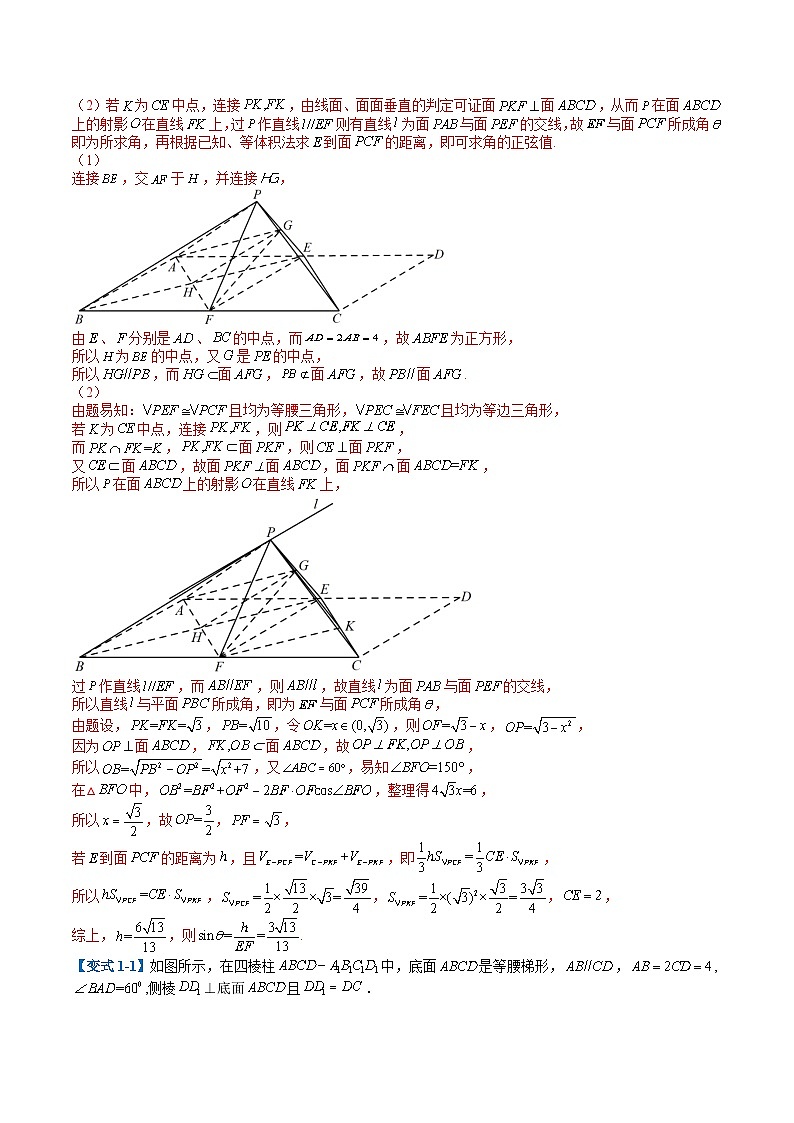 （2）若K为CE中点，连接PK,FK，由线面、面面垂直的判定可证面PKF⊥面ABCD，从而P在面ABCD
上的射影O在直线FK上，过P作直线l//EF则有直线l为面PAB与面PEF的交线，故EF与面PCF所成角θ
即为所求角，再根据已知、等体积法求E到面PCF的距离，即可求角的正弦值.
（1）
连接BE，交AF于H，并连接HG，
P
G
E
A
D
H
B
F
C
由E、F分别是AD、BC的中点，而AD=2AB=4，故ABFE为正方形，
所以H为BE的中点，又G是PE的中点，
所以HG//PB，而HG⊂面AFG，PB⊄面AFG，故PB//面AFG.
（2）
由题易知：∨PEF≅∨PCF且均为等腰三角形，∨PEC≅∨FEC且均为等边三角形，
若K为CE中点，连接PK,FK，则PK⊥CE,FK⊥CE，
而PK∩FK=K，PK,FK⊂面PKF，则CE⊥面PKF，
又CE⊂面ABCD，故面PKF⊥面ABCD，面PKF∩面ABCD=FK，
所以P在面ABCD上的射影O在直线FK上，
l
P
G
E
A
D
H
K
B
F
C
过P作直线l//EF，而AB//EF，则AB//l，故直线l为面PAB与面PEF的交线，
所以直线l与平面PBC所成角，即为EF与面PCF所成角θ，
由题设，PK=FK=√3，PB=√10，令OK=x∈(0,√3)，则OF=√3−x，OP=√(3−x²)，
因为OP⊥面ABCD，FK,OB⊂面ABCD，故OP⊥FK,OP⊥OB，
所以OB=√(PB²−OP²)=√(x²+7)，又∠ABC=60°，易知∠BFO=150°，
在△BFO中，OB²=BF²+OF²−2BF·OFcos∠BFO，整理得4√3x=6，
所以x=√3/2，故OP=3/2，PF=√3，
若E到面PCF的距离为h，且V_{E−PCF}=V_{C−PKF}+V_{E−PKF}，即1/3hS_{∨PCF}=1/3CE·S_{∨PKF}，
所以hS_{∨PCF}=CE·S_{∨PKF}，S_{∨PCF}=1/2×√13/2×√3=√39/4，S_{∨PKF}=1/2×(√3)²×√3/2=3√3/4，CE=2，
综上，h=6√13/13，则sinθ=h/EF=3√13/13.
【变式1-1】如图所示，在四棱柱ABCD−A₁B₁C₁D₁中，底面ABCD是等腰梯形，AB//CD，AB=2CD=4，
∠BAD=60⁰,侧棱DD₁⊥底面ABCD且DD₁=DC．